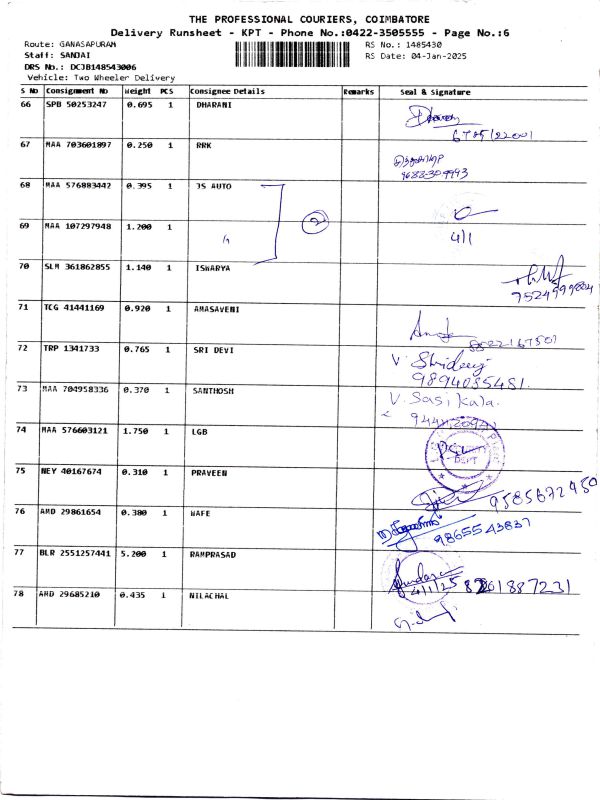 THE PROFESSIONAL COURIERS, COIMBATORE
Delivery Runsheet - KPT - Phone No.:0422-3505555 - Page No.:6
Route: GANASAPURAM RS No.: 1485430
Staff: SANJAI RS Date: 04-Jan-2025
DRS No.: DCJB148543006
Vehicle: Two Wheeler Delivery
S No Consignment No Weight PCS Consignee Details Remarks Seal & Signature
66 SPB 50253247 0.695 1 DHARANI
67 MAA 703601897 0.250 1 RRK
68 MAA 576883442 0.395 1 JS AUTO
2
69 MAA 107297948 1.200 1 4/1
70 SLM 361862855 1.140 1 ISHARYA
71 TCG 41441169 0.920 1 AMASAVENI
72 TRP 1341733 0.765 1 SRI DEVI V. Shrideevi
9894085481.
73 MAA 704958336 0.370 1 SANTHOSH V. Sasikala.
74 MAA 576603121 1.750 1 LGB
75 NEY 40167674 0.310 1 PRAVEEN 9585672950
76 AMD 29861654 0.380 1 WAFE 9865543837
77 BLR 2551257441 5.200 1 RAMPRASAD
4/1/25
78 AMD 29685210 0.435 1 NILACHAL